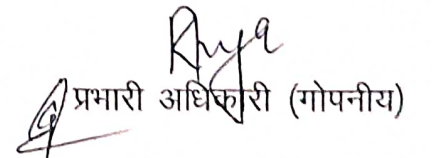 प्रभारी अधिकारी (गोपनीय)